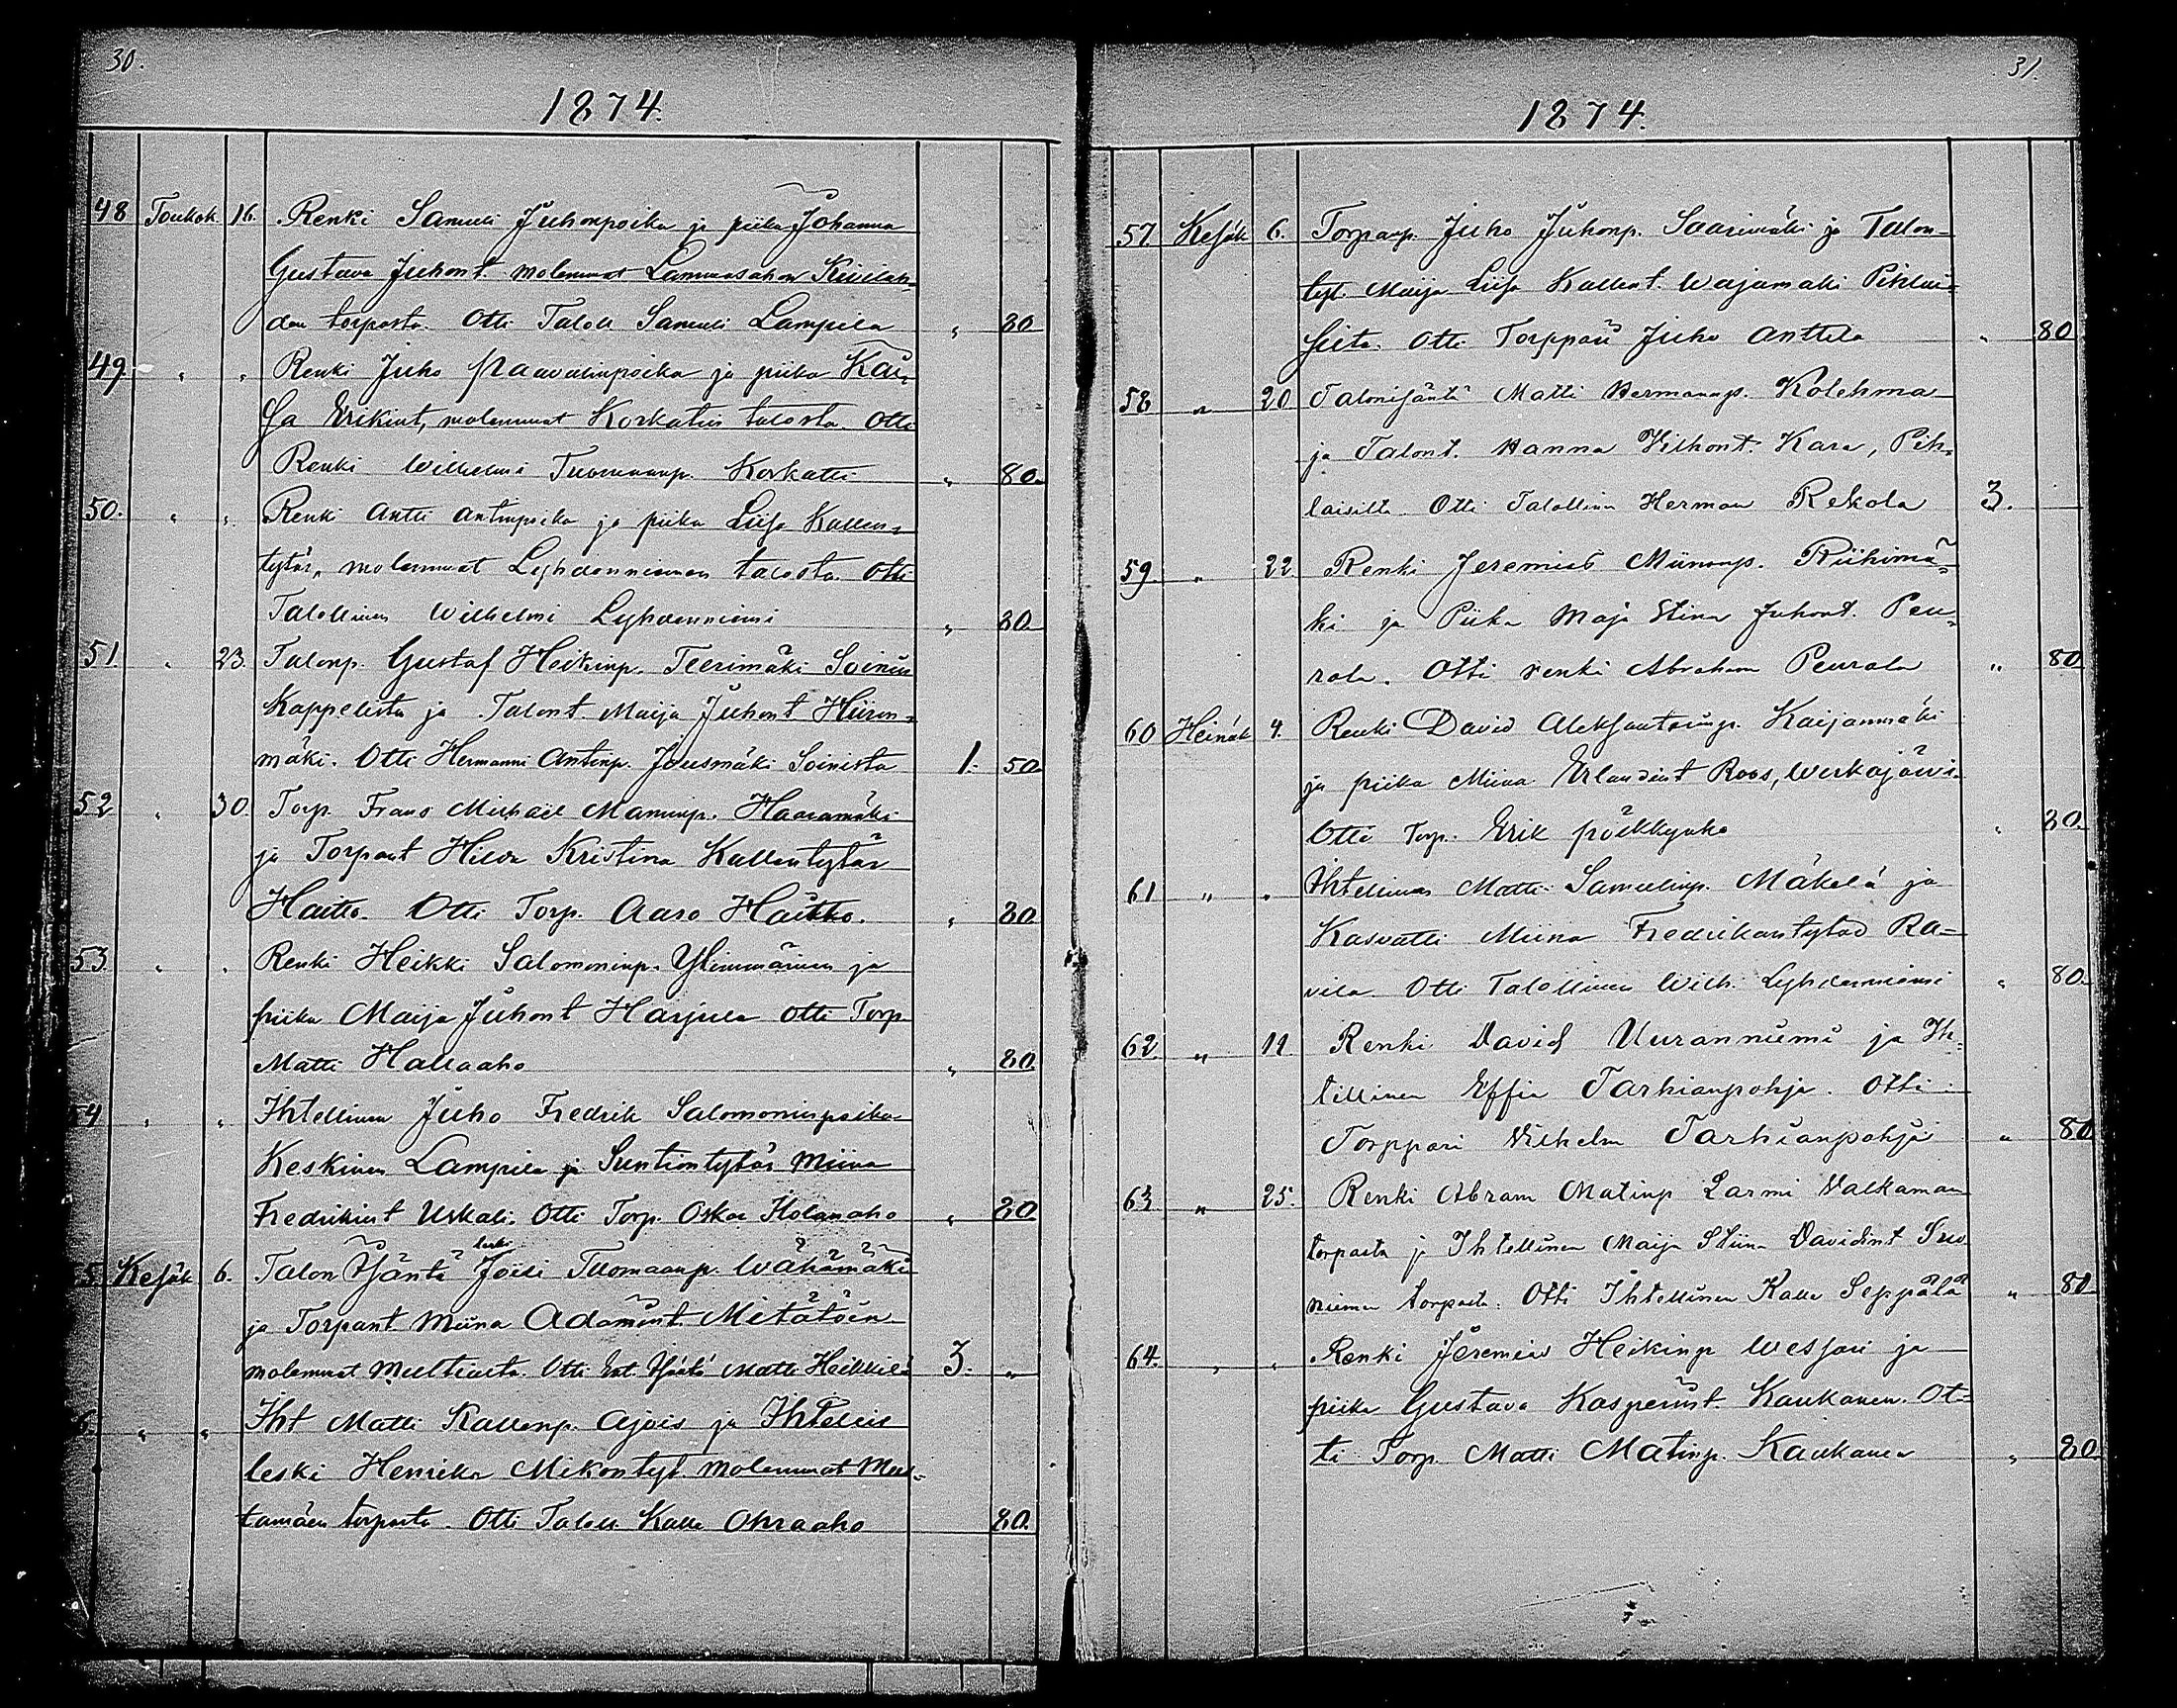 30.
1874.
48 Toukok. 16. Renki Samuli Juhonpoika ja piika Johanna
Gustava Juhont. molemmat Lammasahon Kivilah-
den torpasta. Otti Taloll Samuli Lampila " 80
49. " " Renki Juho Paavalinpoika ja piika Kai-
sa Erikint, molemmat Korkatin talosta. Otti
Renki Wilhelmi Tuomaanp. Korkatti " 80.
50. " " Renki Antti Antinpoika ja piika Liisa Kallen-
tytär, molemmat Lyhdenniemen talosta. Otti
Talollinen Wilhelmi Lyhdenniemi " 80
51. " 23. Talonp. Gustaf Heikinp. Teerimäki Soinin
Kappelista ja Talont. Maija Juhont Hiiron-
mäki. Otti Hermanni Antinp. Jousmäki Soinista 1. 50.
52 " 30. Torp. Frans Michael Manninp. Haaramäki
ja Torpant Hilda Kristina Kallentytär
Haitto. Otti Torp. Aaro Haitto. " 80.
53. " " Renki Heikki Salomoninp. Ylimmäinen ja
piika Maija Juhont Harjula Otti Torp
Matti Hallaaho " 80.
54 " " Ihtellinen Juho Fredrik Salomoninpoika
Keskinen Lampila ja Suntiontytär Miina
Fredrikint Uskali. Otti Torp. Oskar Holanaho " 80
55 Kesäk 6. Talon Isäntä leski Joeli Tuomaanp. Wähämäki
ja Torpant Miina Adamint. Metätöin
molemmat Multialta. Otti Ent Isäntä Matti Heikkilä 3. "
6. " " Iht Matti Kallenp. Ajois ja Ihtellis
leski Henrika Mikontyt. molemmat Mus-
tamäen torpasta. Otti Taloll Kalle Ohraaho 80.
31.
1874.
57 Kesäk 6. Torpanp. Juho Juhonp. Saarimäki ja Talon-
tyt. Maija Liisa Kallent. Wajamäki Pihlai-
sista. Otti Torppari Juho Anttila " 80
58 " 20 Talonisäntä Matti Hermannp. Kolehma
ja Talont. Hanna Vilhont. Kara, Pih-
laisilta Otti Talollinen Herman Rekola 3.
59. " 22 Renki Jeremias Miinanp. Riihimä-
ki ja Piika Maja Stina Juhont. Peu-
rala. Otti renki Abraham Peurala " 80
60 Heinäk 4. Renki David Aleksanterinp. Kaijanmäki
ja piika Miina Erlandint Roos, Werkajärvi
Otti Torp. Erik pölkkynko " 80.
61 " " Ihtellinen Matti Samulinp. Mäkelä ja
Kasvatti Miina Fredrikantytär Ra-
vila. Otti Talollinen Wilh. Lyhdenniemi " 80.
62 " 11 Renki David Uuranniemi ja Ih-
tillinen Effia Tarhianpohja. Otti
Torppari Vilhelm Tarhianpohja " 80
63 " 25. Renki Abram Matinp Larmi Valkaman
torpasta ja Ihtellinen Maija Stiina Davidint Suo
niemen torpasta. Otti Ihtellinen Kalle Seppälä " 80
64. " " Renki Jeremias Heikinp Wessari ja
piika Gustava Kasperint. Kaukanen. Ot-
ti Torp. Matti Matinp. Kaukanen " 80.